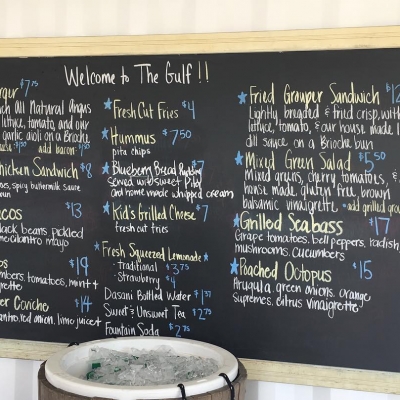 Welcome to The Gulf!!
$7.75
ach All Natural Angus
lettuce, tomato, and our
garlic aioli on a Brioche
add bacon
Chicken Sandwich $8
spicy buttermilk sauce
$13
black beans, pickled
cilantro mayo
$19
tomatoes, mint +
vinaigrette
Ceviche $14
cilantro, red onion, lime juice +
Fresh Cut Fries $4
Hummus $7.50
pita chips
Blueberry Bread Pudding $7
served with sweet pita
and home made whipped cream
Kid's Grilled Cheese $7
fresh cut fries
Fresh Squeezed Lemonade
-traditional $3.75
-Strawberry $4
Dasani Bottled Water
Sweet & Unsweet Tea $2.75
Fountain Soda $2.75
Fried Grouper Sandwich
Lightly breaded & fried crisp, with
lettuce, tomato, & our house made
dill sauce on a Brioche bun
Mixed Green Salad $5.50
Mixed greens, cherry tomatoes, &
house made, gluten free, brown
balsamic vinaigrette. *add grilled
Grilled Seabass $17
Grape tomatoes, bell peppers, radish
mushrooms, cucumbers
Poached Octopus $15
Arugula, green onions, orange
supremes, citrus vinaigrette